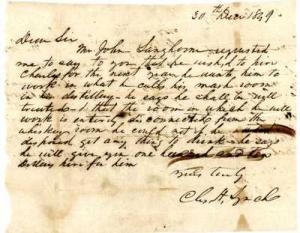 30th Decr 1849
Dear Sir
Mr John requested
me to say to you that he wish'd to hire
Charles for the next year he wants him to
work in what he calls his mash room
in his distillery he says he shall be well
treated & that the room in which he will
work is entirely disconnected from the
whiskey room he could not if he
disposed get any thing to drink he says
he will give you one hundred and ten
Dollars hire for him
yours truly
Chs H. Lynch